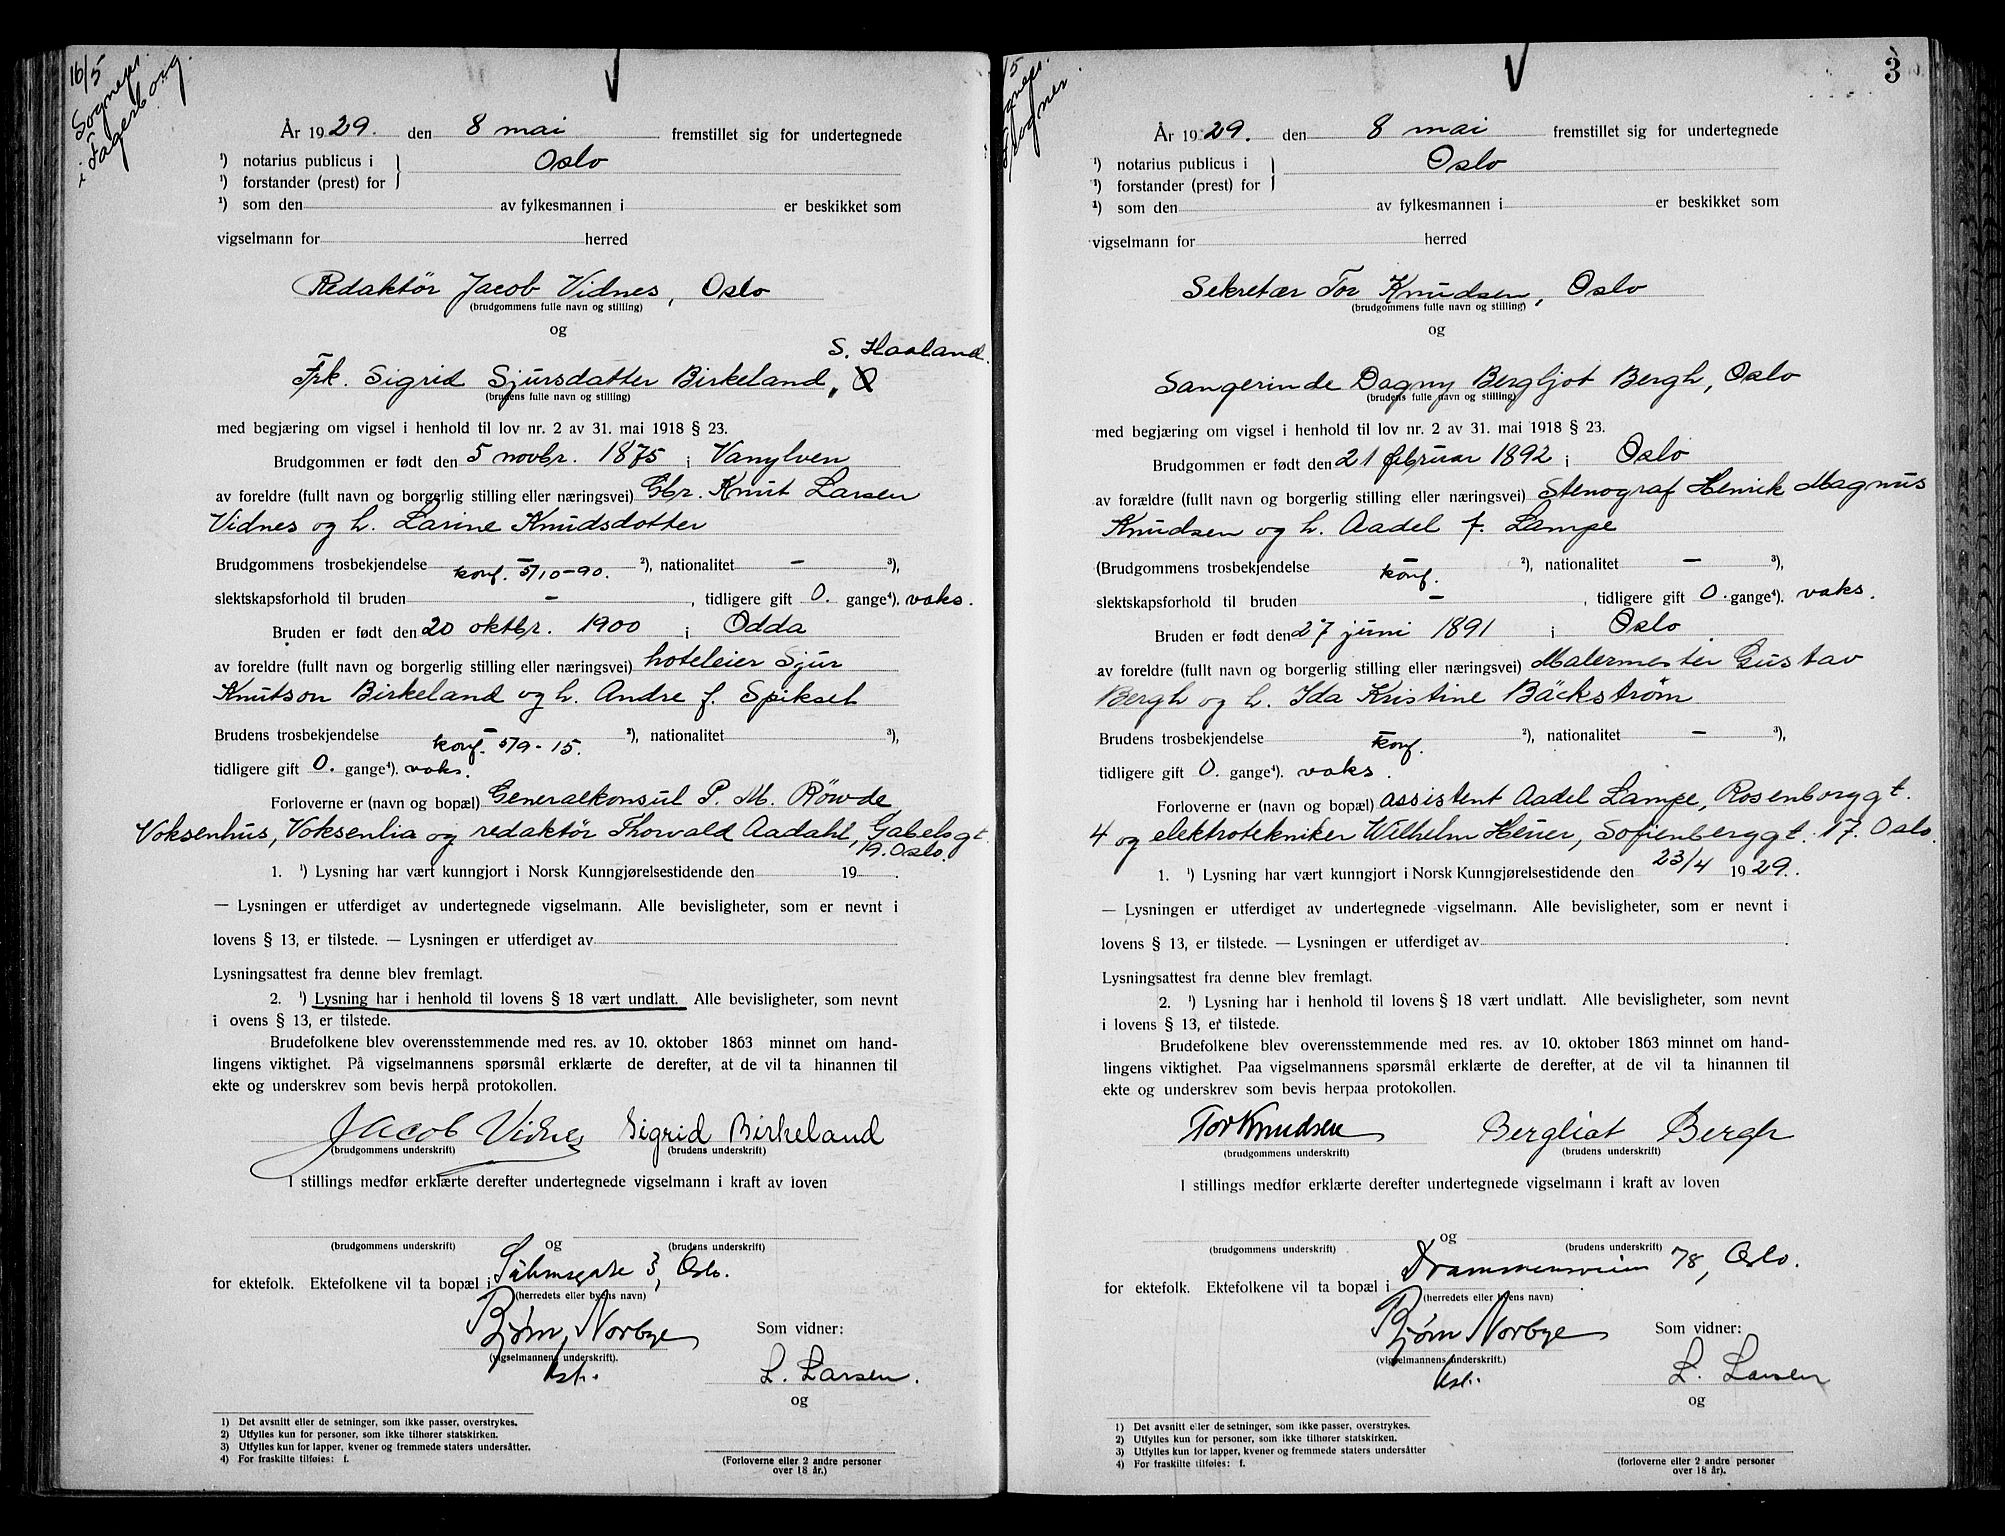 16/5
Sognepr.
i Fagerborg.
År 1929. den 8 mai fremstillet sig for undertegnede
¹) notarius publicus i } Oslo
¹) forstander (prest) for
¹) som den av fylkesmannen i er beskikket som
vigselmann for herred
Redaktør Jacob Vidnes, Oslo
(brudgommens fulle navn og stilling)
og
S. Haaland.
Frk. Sigrid Sjursdatter Birkeland, O
(brudens fulle navn og stilling)
med begjæring om vigsel i henhold til lov nr. 2 av 31. mai 1918 § 23.
Brudgommen er født den 5 novbr. 1875 i Vanylven
av foreldre (fullt navn og borgerlig stilling eller næringsvei) Gbr. Knut Larsen
Vidnes og h. Larine Knudsdotter
Brudgommens trosbekjendelse – konf. 5/10-90. ²), nationalitet – ³),
slektskapsforhold til bruden – , tidligere gift 0. gange⁴). vaks.
Bruden er født den 20 oktbr. 1900 i Odda
av foreldre (fullt navn og borgerlig stilling eller næringsvei) hoteleier Sjur
Knutson Birkeland og h. Andre f. Spikset
Brudens trosbekjendelse – konf. 5/9-15. ²), nationalitet – ³),
tidligere gift 0. gange⁴). vaks.
Forloverne er (navn og bopæl) Generalkonsul P. M. Røwde,
Voksenhus, Voksenlia og redaktør Thorvald Aadahl, Gabelsgt.
19. Oslo.
1. ¹) Lysning har vært kunngjort i Norsk Kunngjørelsestidende den 19 .
— Lysningen er utferdiget av undertegnede vigselmann. Alle bevisligheter, som er nevnt i
lovens § 13, er tilstede. — Lysningen er utferdiget av
Lysningsattest fra denne blev fremlagt.
2. ¹) Lysning har i henhold til lovens § 18 vært undlatt. Alle bevisligheter, som nevnt
i ovens § 13, er tilstede.
Brudefolkene blev overensstemmende med res. av 10. oktober 1863 minnet om hand-
lingens viktighet. På vigselmannens spørsmål erklærte de derefter, at de vil ta hinannen til
ekte og underskrev som bevis herpå protokollen.
Jacob Vidnes Sigrid Birkeland
(brudgommens underskrift) (brudens underskrift)
I stillings medfør erklærte derefter undertegnede vigselmann i kraft av loven
og
(brudgommens underskrift) (brudens underskrift)
for ektefolk. Ektefolkene vil ta bopæl i Suhmsgate 3, Oslo.
(herredets eller byens navn)
Bjørn Norbye Som vidner:
(vigselmannens underskrift).
L. Larsen.
og
1) Det avsnitt eller de setninger, som ikke passer, overstrykes.
2) Utfylles kun for personer, som ikke tilhører statskirken.
3) Utfylles kun for lapper, kvener og fremmede staters undersåtter.
4) For fraskilte tilføies: f.
(Forloverne eller 2 andre personer
over 18 år.)
3
År 1929. den 8 mai fremstillet sig for undertegnede
¹) notarius publicus i } Oslo
¹) forstander (prest) for
¹) som den av fylkesmannen i er beskikket som
vigselmann for herred
Sekretær Tor Knudsen, Oslo
(brudgommens fulle navn og stilling)
og
Sangerinde Dagny Bergljot Bergh, Oslo
(brudens fulle navn og stilling)
med begjæring om vigsel i henhold til lov nr. 2 av 31. mai 1918 § 23.
Brudgommen er født den 21 februar 1892 i Oslo
av forældre (fullt navn og borgerlig stilling eller næringsvei) Stenograf Henrik Magnus
Knudsen og h. Aadel f. Lampe
(Brudgommens trosbekjendelse – konf. ²), nationalitet – ³),
slektskapsforhold til bruden – , tidligere gift 0. gange⁴). vaks.
Bruden er født den 27 juni 1891 i Oslo
av foreldre (fullt navn og borgerlig stilling eller næringsvei) Malermester Gustav
Bergh og h. Ida Kristine Bäckstrøm
Brudens trosbekjendelse – konf. ²), nationalitet – ³),
tidligere gift 0. gange⁴). vaks.
Forloverne er (navn og bopæl) assistent Aadel Lampe, Rosenborggt.
4 og elektrotekniker Wilhelm Heuer, Sofienberggt. 17. Oslo.
1. ¹) Lysning har vært kunngjort i Norsk Kunngjørelsestidende den 23/4 1929.
— Lysningen er utferdiget av undertegnede vigselmann. Alle bevisligheter, som er nevnt i
lovens § 13, er tilstede. — Lysningen er utferdiget av
Lysningsattest fra denne blev fremlagt.
2. ¹) Lysning har i henhold til lovens § 18 vært undlatt. Alle bevisligheter, som nevnt
i lovens § 13, er tilstede.
Brudefolkene blev overensstemmende med res. av 10. oktober 1863 minnet om hand-
lingens viktighet. Paa vigselmannens spørsmål erklærte de derefter, at de vil ta hinannen til
ekte og underskrev som bevis herpaa protokollen.
Tor Knudsen Bergliot Bergh
(brudgommens underskrift) (brudens underskrift)
I stillings medfør erklærte derefter undertegnede vigselmann i kraft av loven
og
(brudgommens underskrift) (brudens underskrift)
for ektefolk. Ektefolkene vil ta bopæl i Drammensveien 78, Oslo.
(herredets eller byens navn)
Bjørn Norbye Som vidner:
(vigselmannens underskrift.)
L. Larsen
og
1) Det avsnitt eller de setninger, som ikke passer, overstrykes.
2) Utfylles kun for personer, som ikke tilhører statskirken.
3) Utfylles kun for lapper, kvener og fremmede staters undersåtter
4) For fraskilte tilføies: f.
(forloverne eller 2 andre personer
over 18 år).